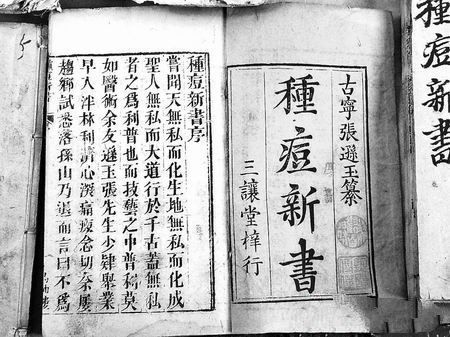 種痘新書
古寧張遜玉纂
種痘新書
三讓堂梓行
種痘新書序
嘗聞天無私而化生地無私而化成
聖人無私而大道行於千古蓋無私
者之為利普也而技藝之中普稱莫
如醫術余友遜玉張先生少肄舉業
早入泮林利濟心深痌瘝念切奈屢
趨鄉試悉落孫山乃退而言曰不為